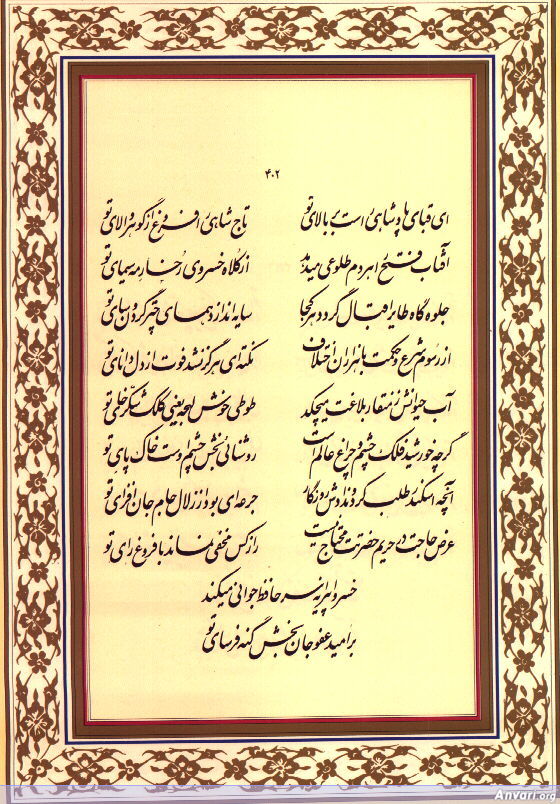 ۴۰۲
ای قبای پادشاهی راست بر بالای تو تاج شاهی را فروغ از گوهر والای تو
آفتاب فتح را هر دم طلوعی میدهد از کلاه خسروی رخسار مه سیمای تو
جلوه گاه طایر اقبال گردد هر کجا سایه اندازد همای چتر گردون سای تو
از رسوم شرع و حکمت با هزاران اختلاف نکته ای هرگز نشد فوت از دل دانای تو
آب حیوانش ز منقار بلاغت میچکد طوطی خوش لهجه یعنی کلک شکر خای تو
گرچه خورشید فلک چشم و چراغ عالم است روشنائی بخش چشم اوست خاک پای تو
آنچه اسکندر طلب کرد و ندادش روزگار جرعه ای بود از زلال جام جان افزای تو
عرض حاجت در حریم حضرتت محتاج نیست راز کس مخفی نماند با فروغ رای تو
خسروا پیرانه سر حافظ جوانی میکند
بر امید عفو جان بخش گنه فرسای تو
Anvari.org